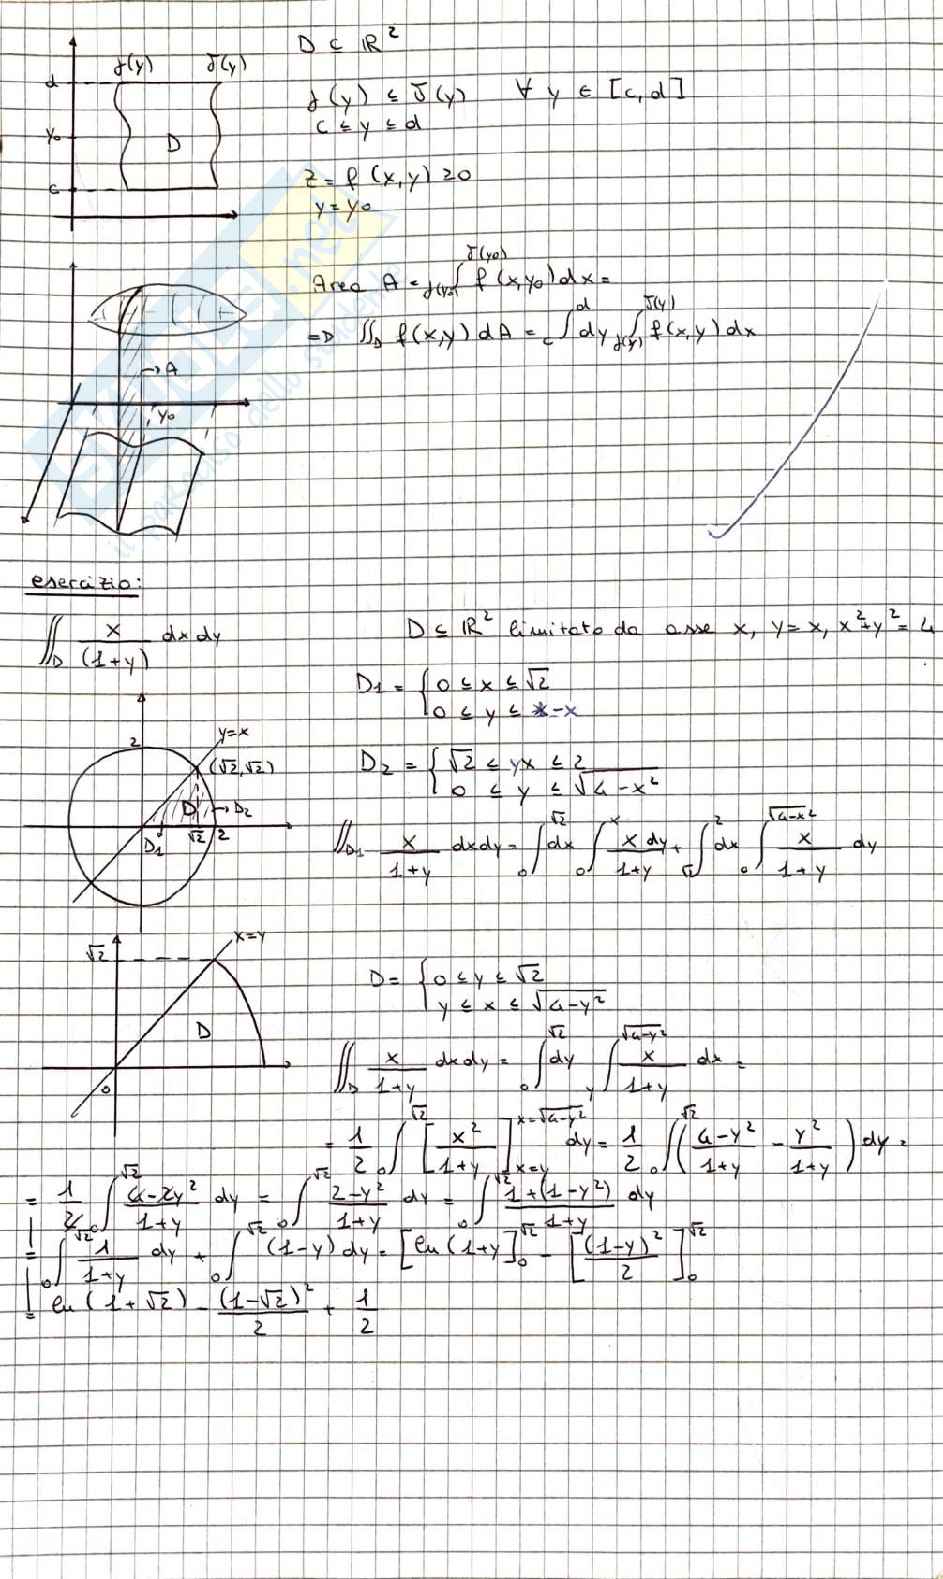 D ⊆ ℝ²
γ(y) δ(y)
d
γ(y) ≤ δ(y) ∀ y ∈ [c, d]
c ≤ y ≤ d
y₀
D
z = f(x,y) ≥ 0
c
y = y₀
Area A = ∫_{γ(y₀)}^{δ(y₀)} f(x,y₀) dx =
=D ∬_D f(x,y) dA = ∫_c^d dy ∫_{γ(y)}^{δ(y)} f(x,y) dx
→A
y₀
esercizio:
∬_D x/(1+y) dx dy D ⊆ ℝ² limitato da asse x, y=x, x²+y²=4
D1 = { 0 ≤ x ≤ √2
0 ≤ y ≤ x
y=x
2
(√2,√2)
D2 = { √2 ≤ x ≤ 2
0 ≤ y ≤ √(4-x²)
D →D2
D1 √2 2
∬_{D1} x/(1+y) dxdy = ∫_0^{√2} dx ∫_0^x x dy/(1+y) + ∫_{√2}^2 dx ∫_0^{√(4-x²)} x/(1+y) dy
x=y
√2
D = { 0 ≤ y ≤ √2
y ≤ x ≤ √(4-y²)
D
0
∬_D x/(1+y) dxdy = ∫_0^{√2} dy ∫_y^{√(4-y²)} x/(1+y) dx =
= 1/2 ∫_0^{√2} [x²/(1+y)]_{x=y}^{x=√(4-y²)} dy = 1/2 ∫_0^{√2} ((4-y²)/(1+y) - y²/(1+y)) dy =
= 1/2 ∫_0^{√2} (4-2y²)/(1+y) dy = ∫_0^{√2} (2-y²)/(1+y) dy = ∫_0^{√2} (1+(1-y²))/(1+y) dy
= ∫_0^{√2} 1/(1+y) dy + ∫_0^{√2} (1-y) dy = [ln(1+y]_0^{√2} - [(1-y)²/2]_0^{√2}
= ln(1+√2) - (1-√2)²/2 + 1/2